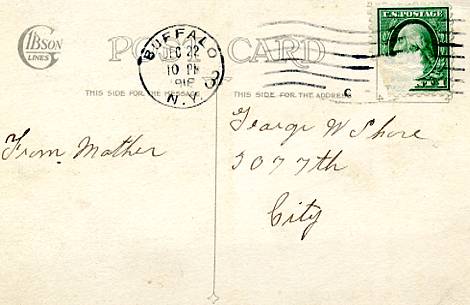 GIBSON
LINES
POST CARD
BUFFALO
DEC 22
10 PM
N.Y.
U.S. POSTAGE
1
C
THIS SIDE FOR THE MESSAGE
THIS SIDE FOR THE ADDRESS
From Mother
George W Shore
307 7th
City